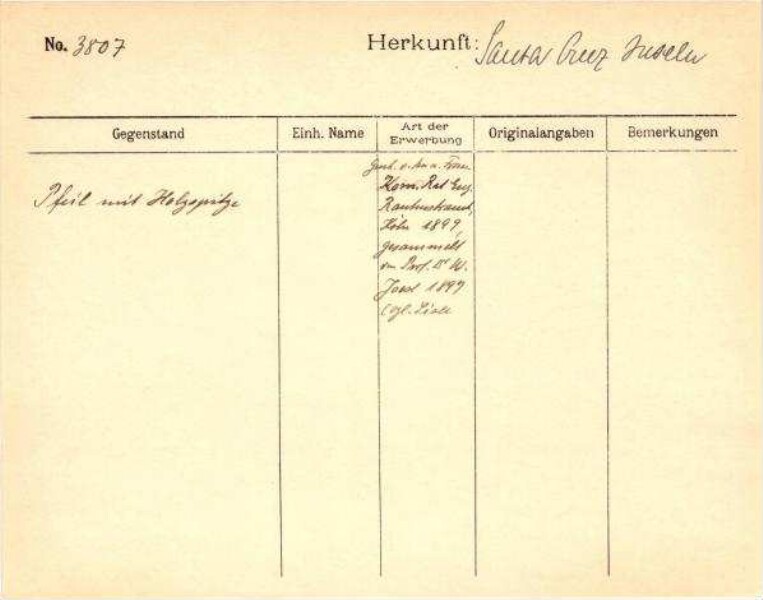 No. 3807
Herkunft: Santa Cruz Inseln
Gegenstand
Einh. Name
Art der Erwerbung
Originalangaben
Bemerkungen
Pfeil mit Holzspitze
Gesch. v. Frau
Kom. Rat Eug.
Rautenstrauch,
Köln 1899,
gesammelt
von Prof. Dr W.
Joest 1897
(vgl. Liste